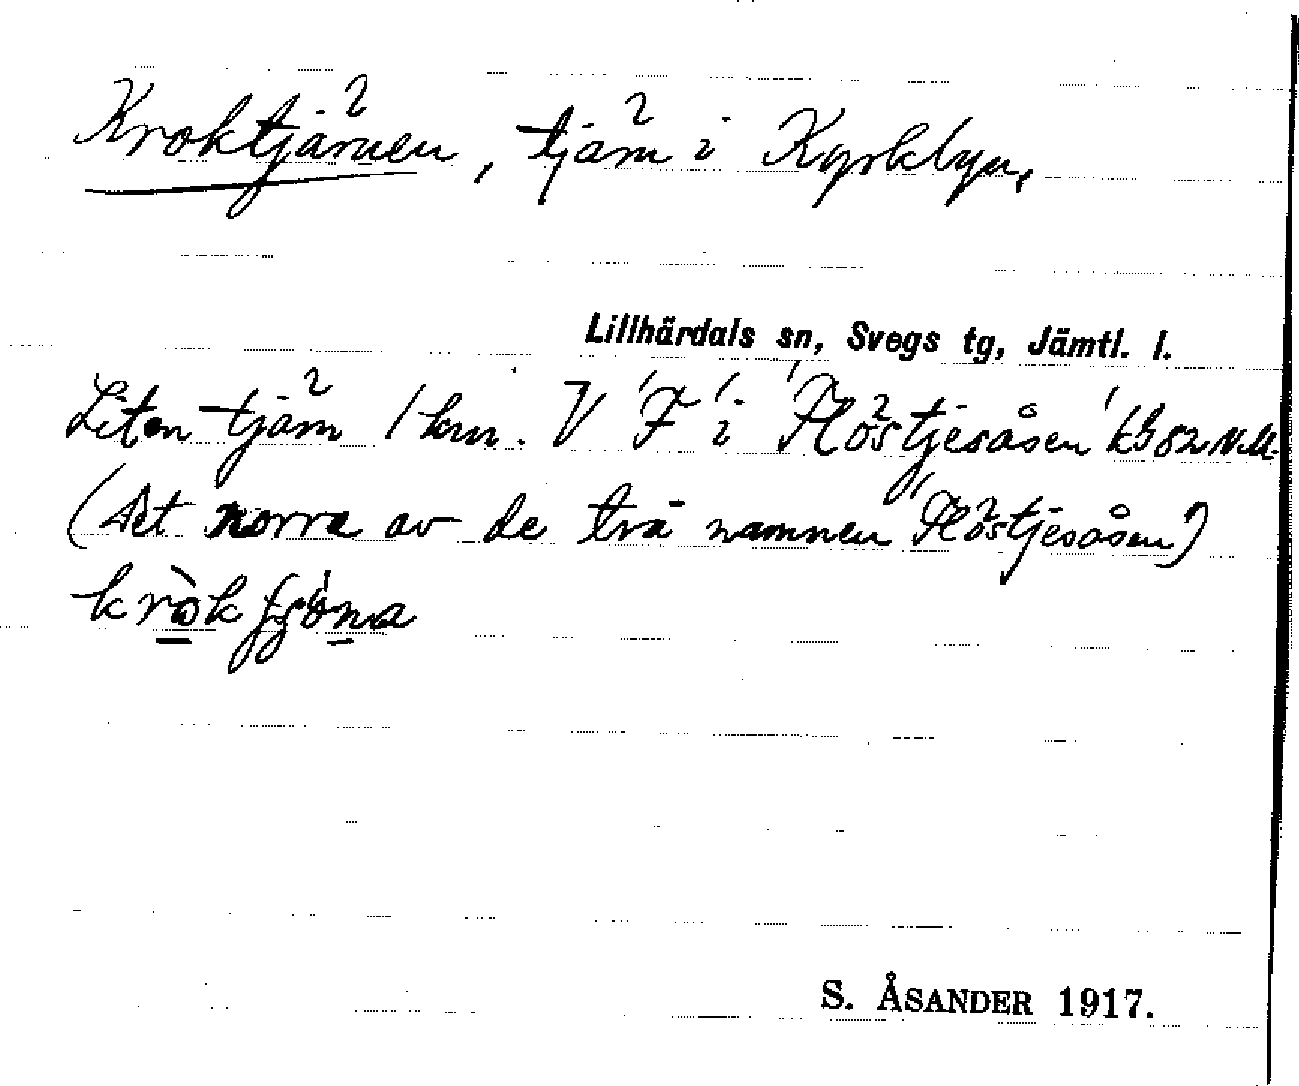 Kroktjärnen, tjärn i Kyrkbyn,
Lillhärdals sn, Svegs tg, Jämtl. l.
Liten tjärn 1 km. V 'F' i 'Flöstjesåsen' kB 82 N.M.
(det norra av de två namnen 'Flöstjesåsen')
S. ÅSANDER 1917.